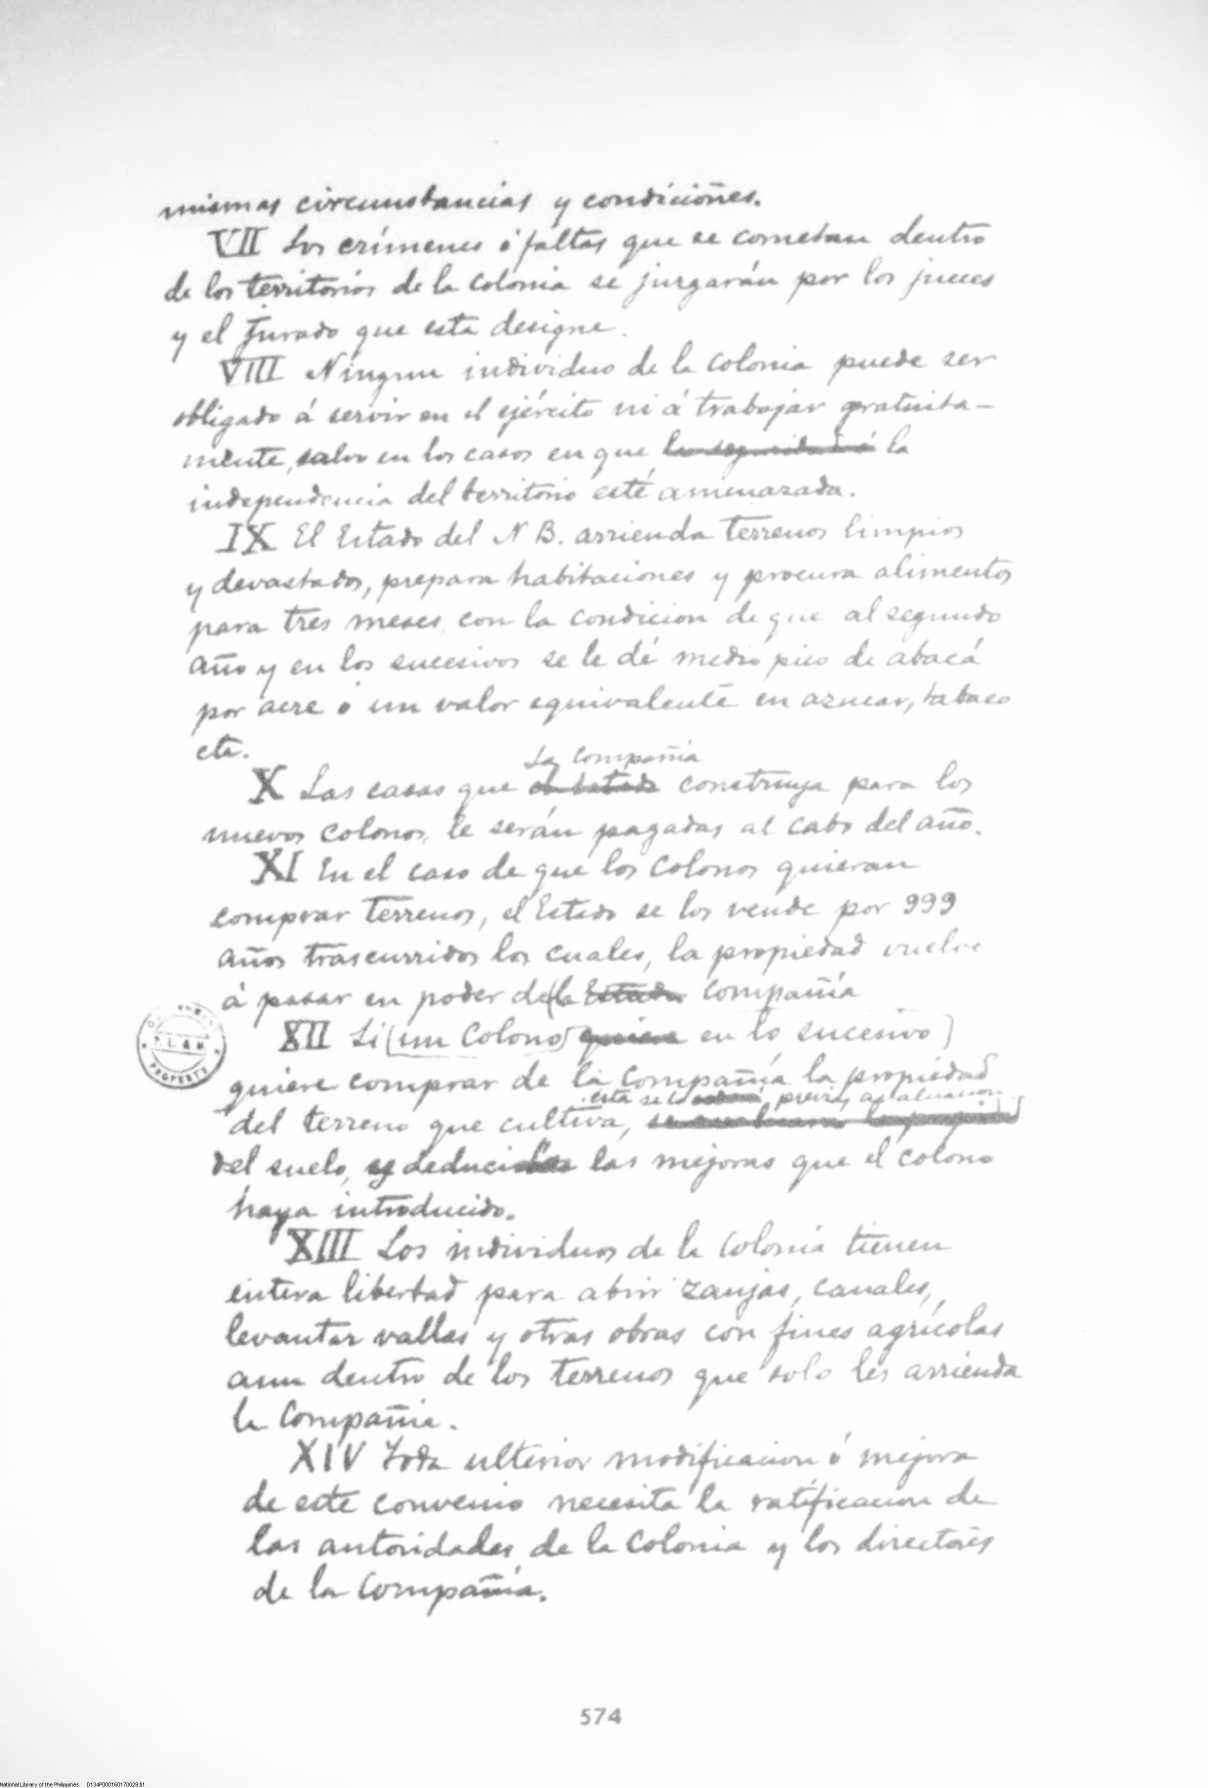 mismas circunstancias y condiciones.
VII Los crímenes ó faltas que se cometan dentro
de los territorios de la colonia se juzgarán por los jueces
y el Jurado que esta designe.
VIII Ningun individuo de la colonia puede ser
obligado á servir en el ejército ni á trabajar gratuita-
mente, salvo en los casos en que la
independencia del territorio esté amenazada.
IX El Estado del N B. arrienda terrenos limpios
y devastados, prepara habitaciones y procura alimentos
para tres meses, con la condicion de que al segundo
año y en los sucesivos se le dé medio pico de abacá
por acre ó un valor equivalente en azucar, tabaco
etc.
La Compañia
X Las casas que el Estado construya para los
nuevos colonos, le serán pagadas al cabo del año.
XI En el caso de que los colonos quieran
comprar terrenos, el Estado se los vende por 999
años trascurridos los cuales, la propiedad vuelve
á pasar en poder de la Estado Compañía
XII Si (un Colono) quiere en lo sucesivo
quiere comprar de la Compañía la propiedad
esta se lo previa
del terreno que cultiva,
del suelo, las mejoras que el colono
haya introducido.
XIII Los individuos de la Colonia tienen
entera libertad para abrir zanjas, canales,
levantar vallas y otras obras con fines agrícolas
aun dentro de los terrenos que solo les arrienda
la Compañia.
XIV Toda ulterior modificacion ó mejora
de este convenio necesita la ratificacion de
las autoridades de la Colonia y los directores
de la Compañía.
PROPERTY
574
National Library of the Philippines